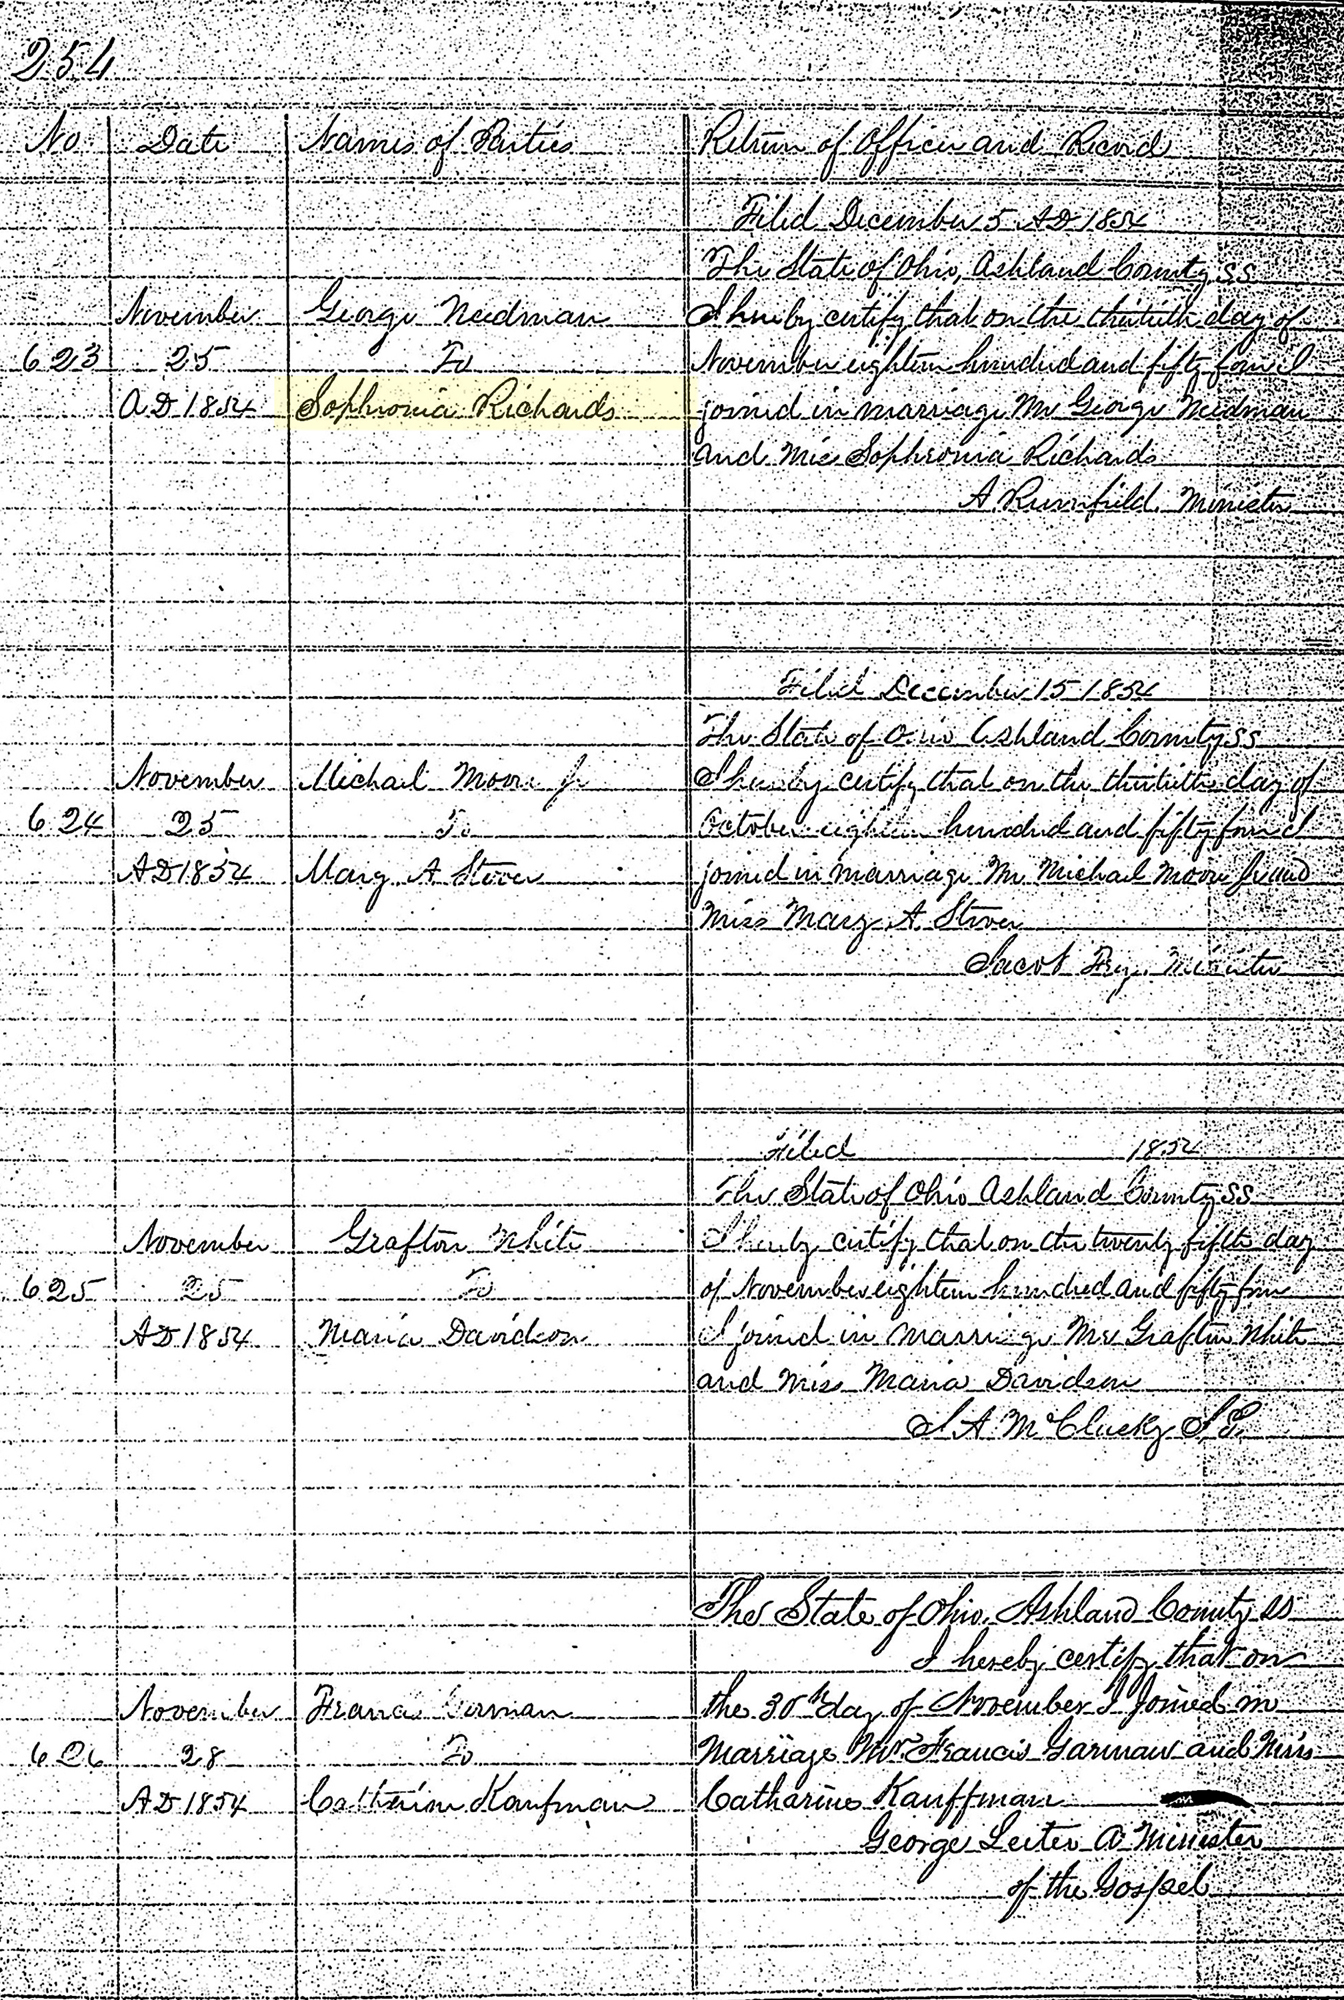 254
No Date Names of Parties Return of Officer and Record
Filed December 5 AD 1854
The State of Ohio, Ashland County ss
November George Needman I hereby certify that on the thirtieth day of
623 25 To November eighteen hundred and fifty four I
AD 1854 Sophronia Richards joined in marriage Mr George Needman
and Miss Sophronia Richards
A. Rumfield. Minister
Filed December 15 1854
The State of Ohio Ashland County ss
November Michael Moore Jr I hereby certify that on the thirtieth day of
624 25 To October eighteen hundred and fifty four I
AD 1854 Mary A Stover joined in marriage Mr Michael Moore Jr and
Miss Mary A. Stover
Jacob Fry. Minister
Filed 1854
The State of Ohio Ashland County ss
November Grafton White I hereby certify that on the twenty fifth day
625 25 To of November eighteen hundred and fifty four
AD 1854 Maria Davidson I joined in marriage Mr Grafton White
and Miss Maria Davidson
S A McClusky
The State of Ohio, Ashland County ss
I hereby certify that on
November Francis the 30th day of November I joined in
626 28 To Marriage Mr Francis Garman and Miss
AD 1854 Catherine Kaufman Catharine Kauffman
George Leiter A Minister
of the Gospel